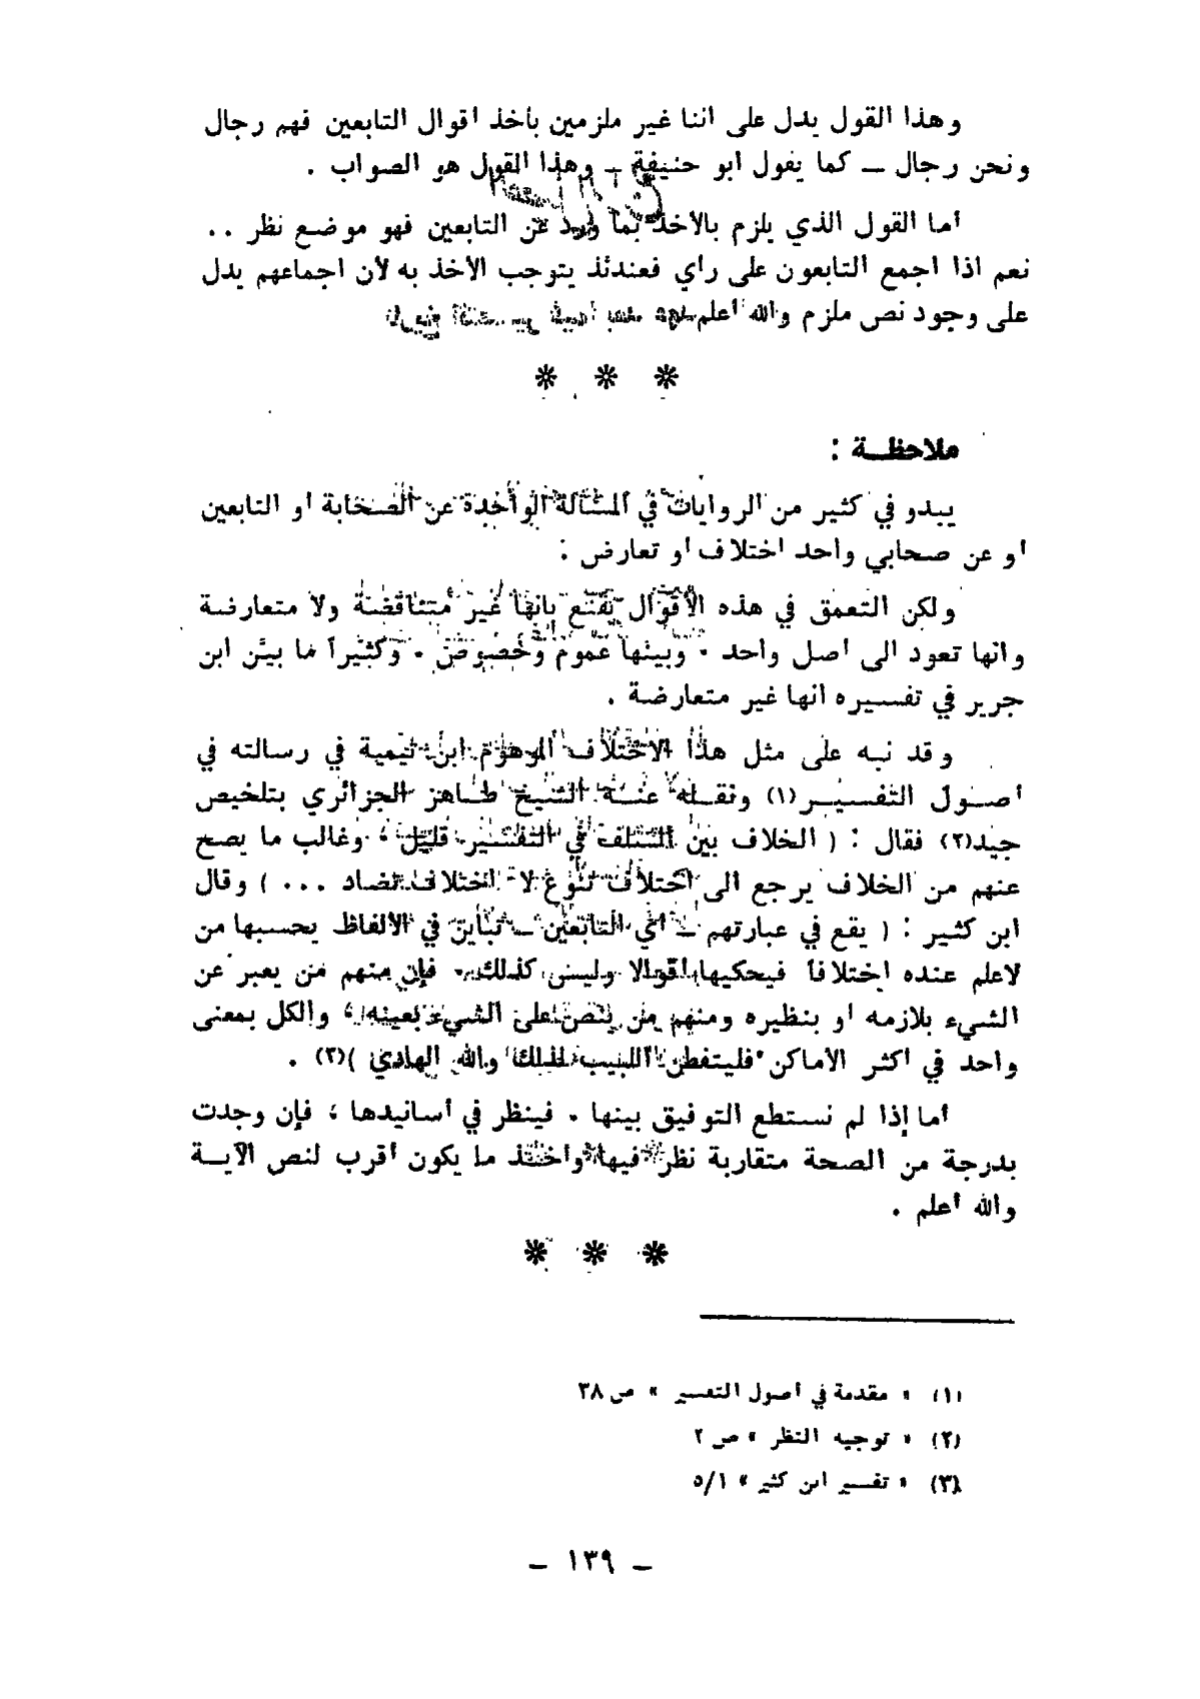 وهذا القول يدل على اننا غير ملزمين بأخذ اقوال التابعين فهم رجال
ونحن رجال ــ كما يقول ابو حنيفة ــ وهذا القول هو الصواب .
أما القول الذي يلزم بالأخذ بما ورد عن التابعين فهو موضع نظر ..
نعم اذا اجمع التابعون على رأي فعندئذ يتوجب الأخذ به لأن اجماعهم يدل
على وجود نص ملزم والله أعلم
* * *
ملاحظـة :
يبدو في كثير من الروايات في المسألة الواحدة عن الصحابة او التابعين
أو عن صحابي واحد اختلاف أو تعارض :
ولكن التعمق في هذه الأقوال يقنع بانها غير متناقضة ولا متعارضة
وانها تعود الى أصل واحد . وبينها عموم وخصوص . وكثيراً ما بيّن ابن
جرير في تفسيره انها غير متعارضة .
وقد نبه على مثل هذا الاختلاف الموهوم ابن تيمية في رسالته في
أصـول التفسيـر(١) ونقـله عنـه الشيخ طـاهر الجزائري بتلخيص
جيد(٢) فقال : ( الخلاف بين السلف في التفسير قليل ، وغالب ما يصح
عنهم من الخلاف يرجع الى اختلاف تنوع لا اختلاف تضاد ... ) وقال
ابن كثير : ( يقع في عبارتهم ــ أي التابعين ــ تباين في الألفاظ يحسبها من
لاعلم عنده اختلافاً فيحكيها اقوالا وليس كذلك . فإن منهم من يعبر عن
الشيء بلازمه أو بنظيره ومنهم من ينص على الشيء بعينه ، والكل بمعنى
واحد في اكثر الأماكن فليتفطن اللبيب لذلك والله الهادي )(٣) .
أما إذا لم نستطع التوفيق بينها . فينظر في أسانيدها ؛ فإن وجدت
بدرجة من الصحة متقاربة نظر فيها وأخذ ما يكون أقرب لنص الآيـة
والله أعلم .
* * *
(١) « مقدمة في أصول التفسير » ص ٣٨
(٢) « توجيه النظر » ص ٢
(٣) « تفسير ابن كثير » ٥/١
ــ ١٣٩ ــ